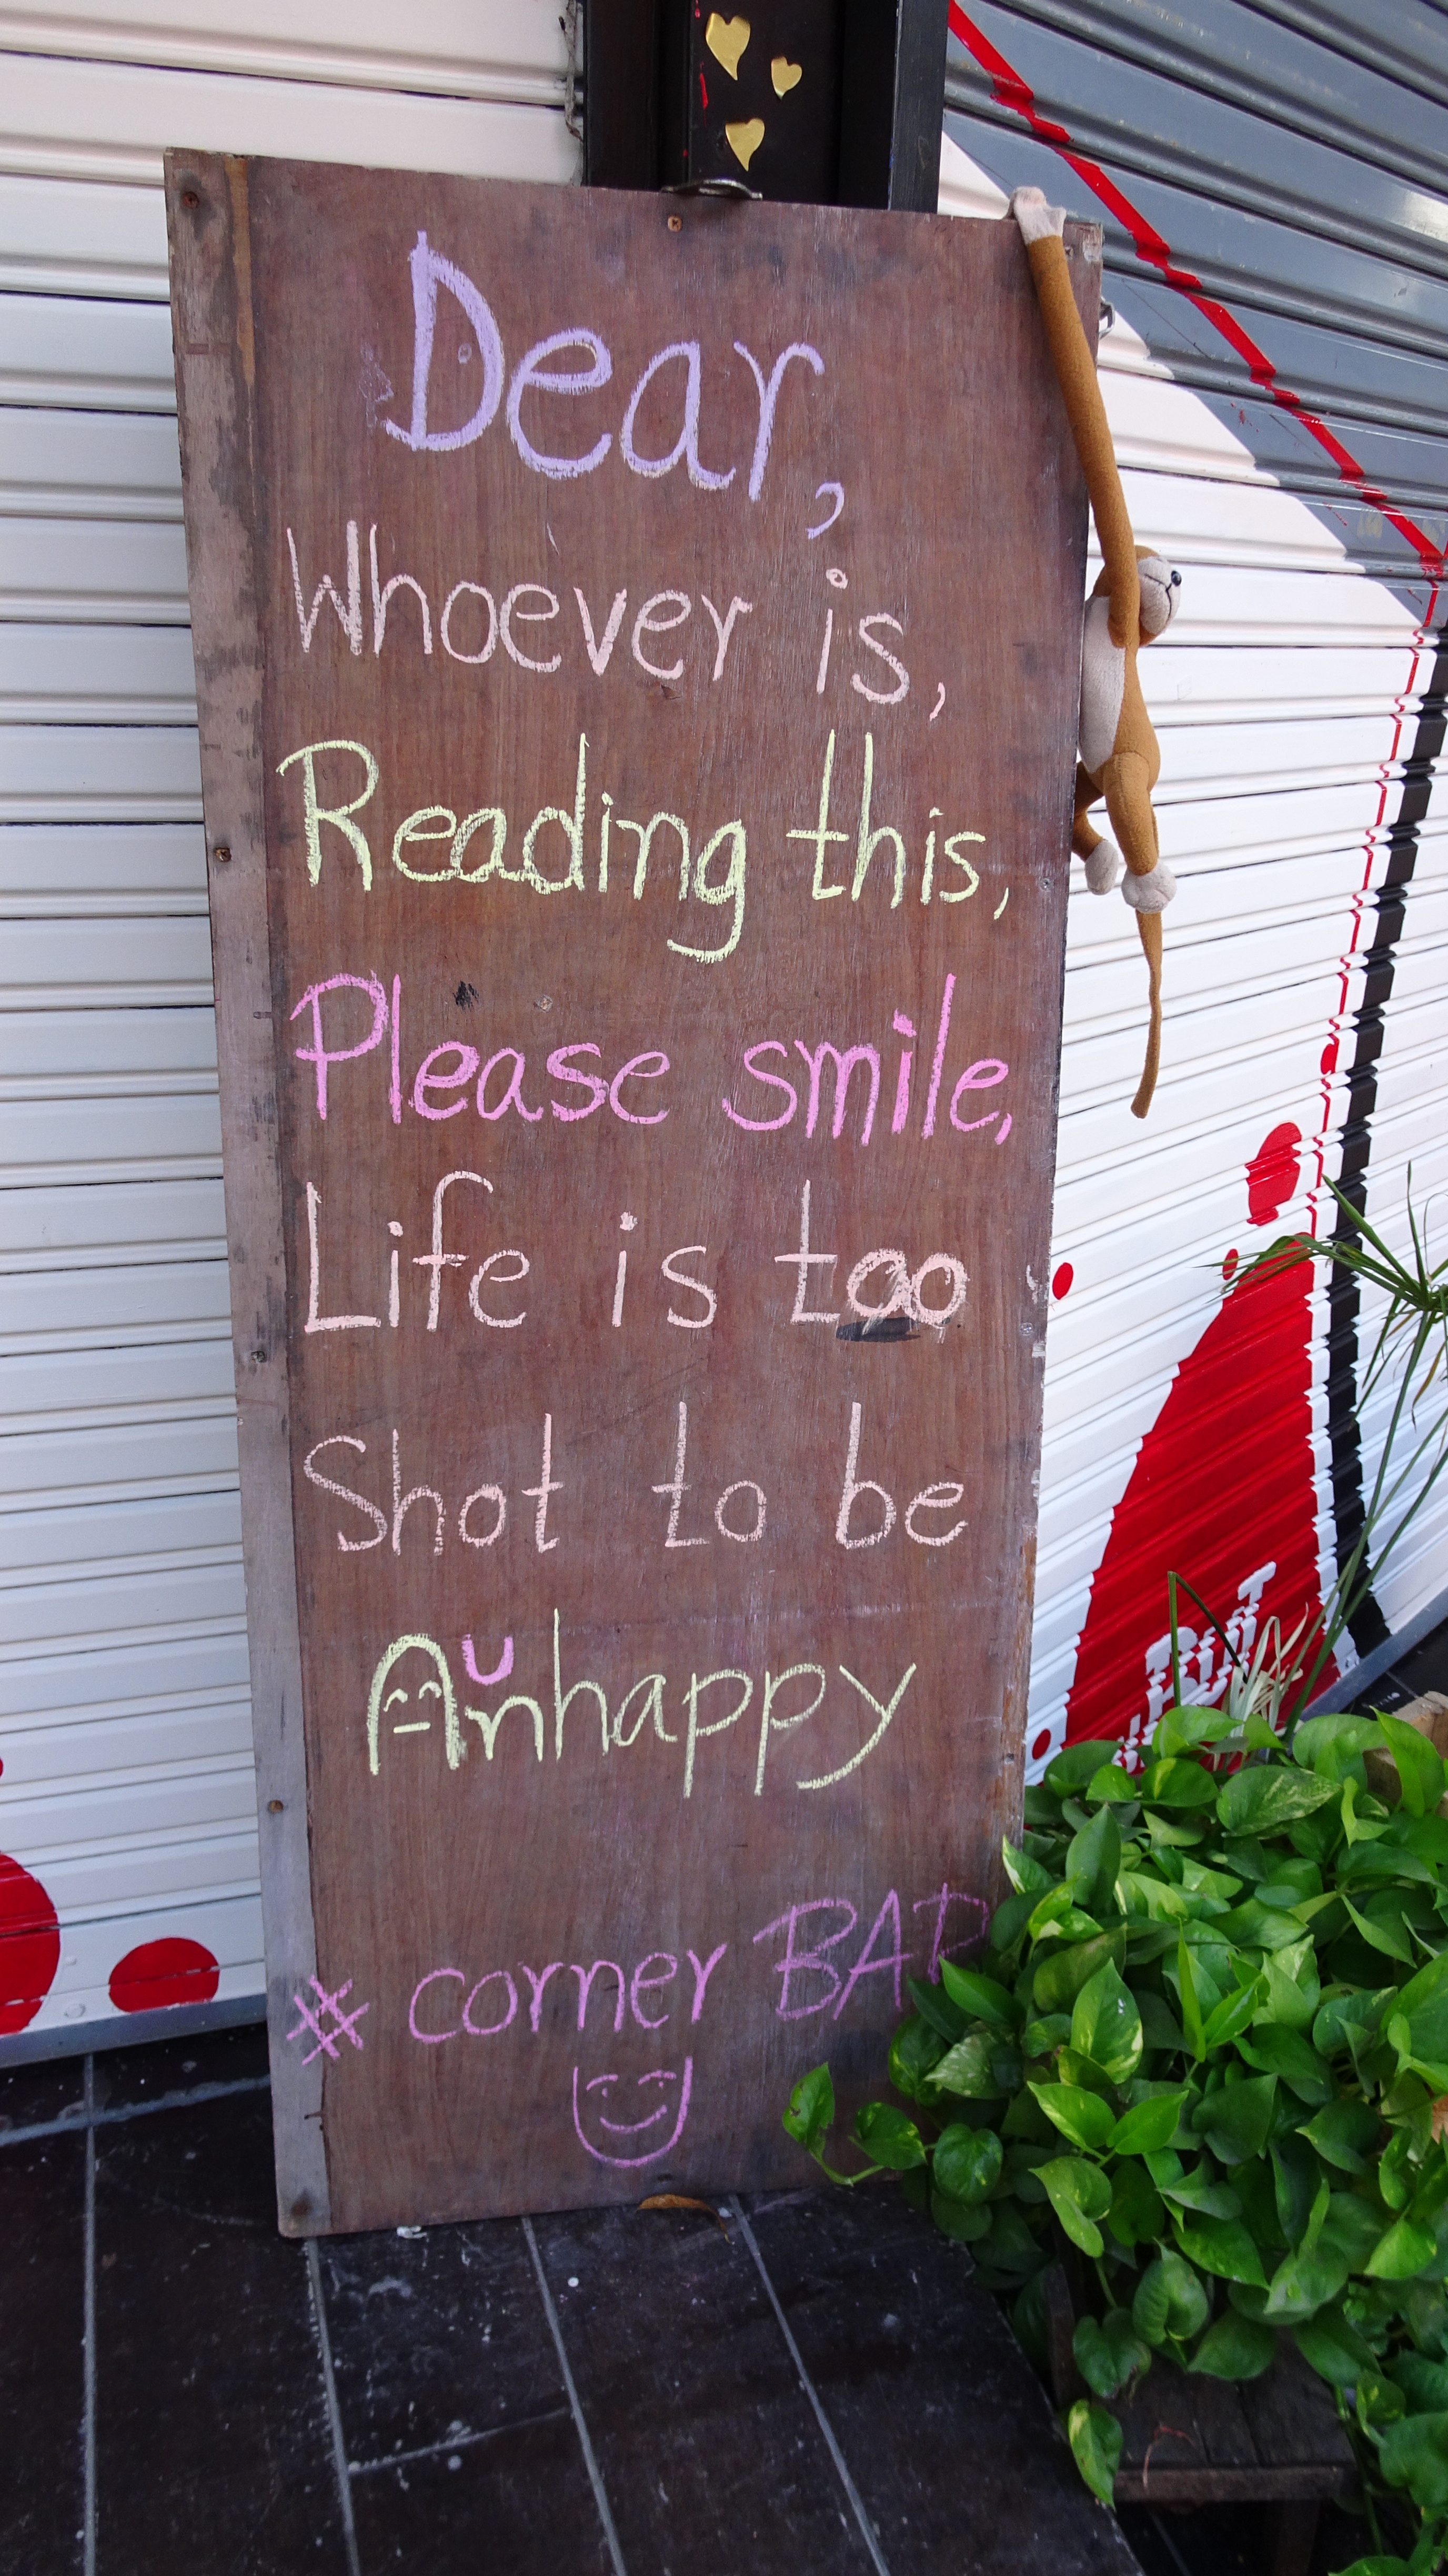 Dear,
Whoever is,
Reading this,
Please smile,
Life is too
Shot to be
Anhappy
U
# corner BAR